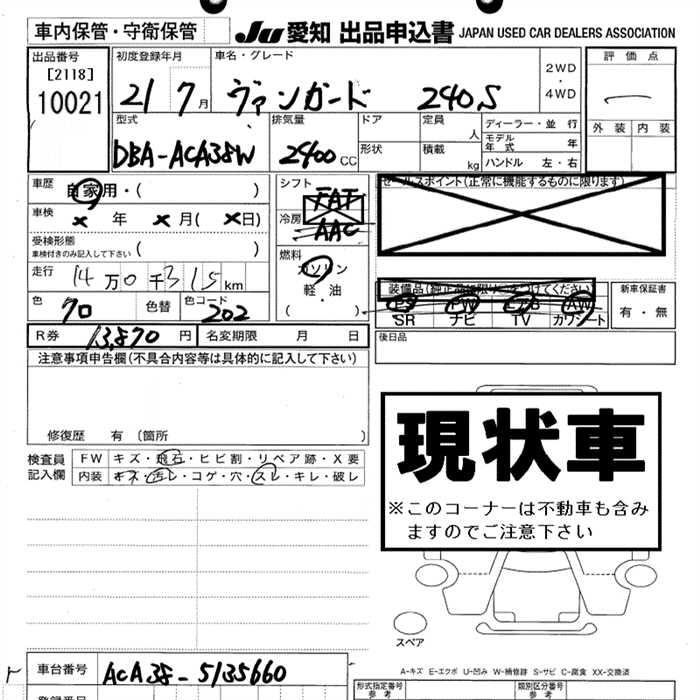 車内保管・守衛保管
JU 愛知 出品申込書 JAPAN USED CAR DEALERS ASSOCIATION
出品番号
[2118]
10021
初度登録年月
21 7月
車名・グレード
ヴァンガード 240S
2WD
・
4WD
評価点
外装 内装
型式
DBA-ACA38W
排気量
2400 CC
ドア
形状
定員
人
積載
kg
ディーラー・並行
モデル年式 年
ハンドル 左・右
車歴 自家用・( )
車検 × 年 × 月( × 日)
受検形態
車検付きのみ記入して下さい ( )
走行 14万0千315km
色 クロ 色替 色コード 202
シフト FAT
冷房 AAC
燃料
ガソリン
軽・油
( )
セールスポイント(正常に機能するものに限ります)
装備品(純正品に限り○をつけてください)
PS PW AB AW
SR ナビ TV カワシート
新車保証書
有・無
後日品
R券 13,870 円 名変期限 月 日
注意事項申告欄(不具合内容等は具体的に記入して下さい)
修復歴 有 〔箇所 〕
検査員
記入欄
FW キズ・飛石・ヒビ割・リペア跡・X要
内装 キズ・汚レ・コゲ・穴・スレ・キレ・破レ
現状車
※このコーナーは不動車も含み
ますのでご注意下さい
スペア
A-キズ E-エクボ U-凹み W-補修跡 S-サビ C-腐食 XX-交換済
車台番号 ACA38-5135660
型式指定番号
参考
類別区分番号
参考
登録番号